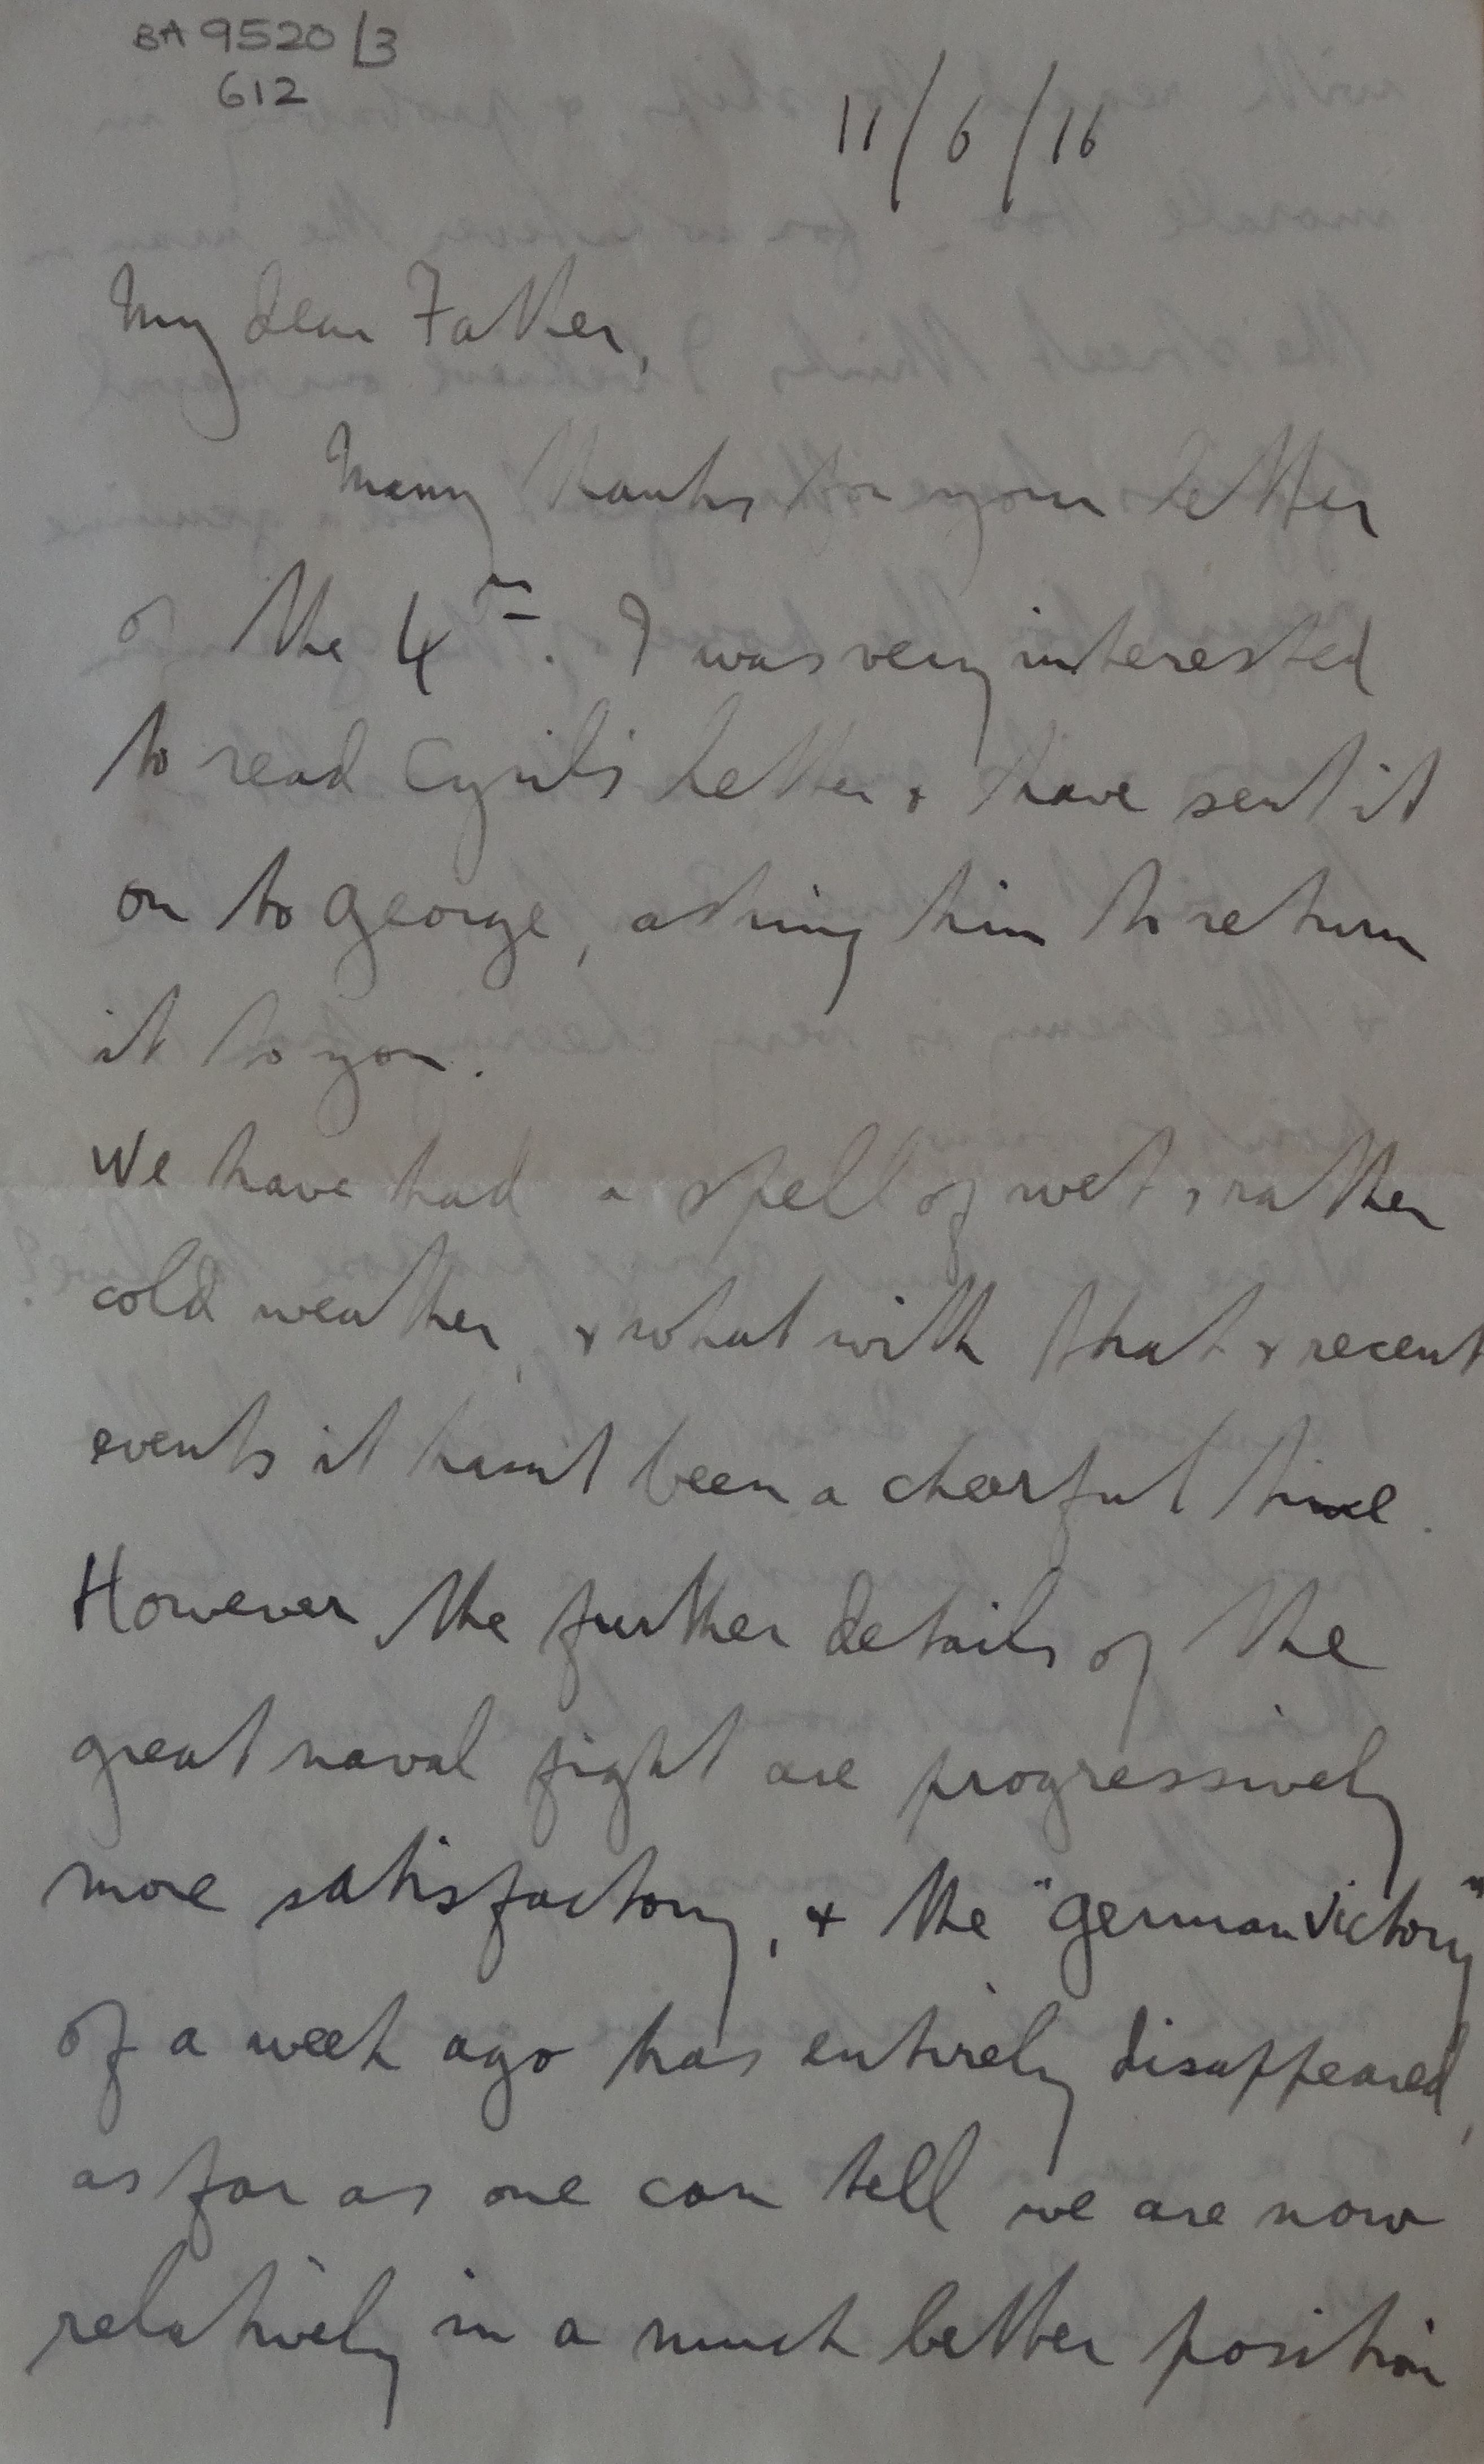 BA 9520/3
612
11/6/16
My dear Father,
Many thanks for your letter
of the 4th. I was very interested
to read Cyril's letter & have sent it
on to George, asking him to return
it to you.
We have had a spell of wet, rather
cold weather, & what with that & recent
events it hasn't been a cheerful time.
However the further details of the
great naval fight are progressively
more satisfactory, & the "German victory"
of a week ago has entirely disappeared,
as far as one can tell we are now
relatively in a much better position